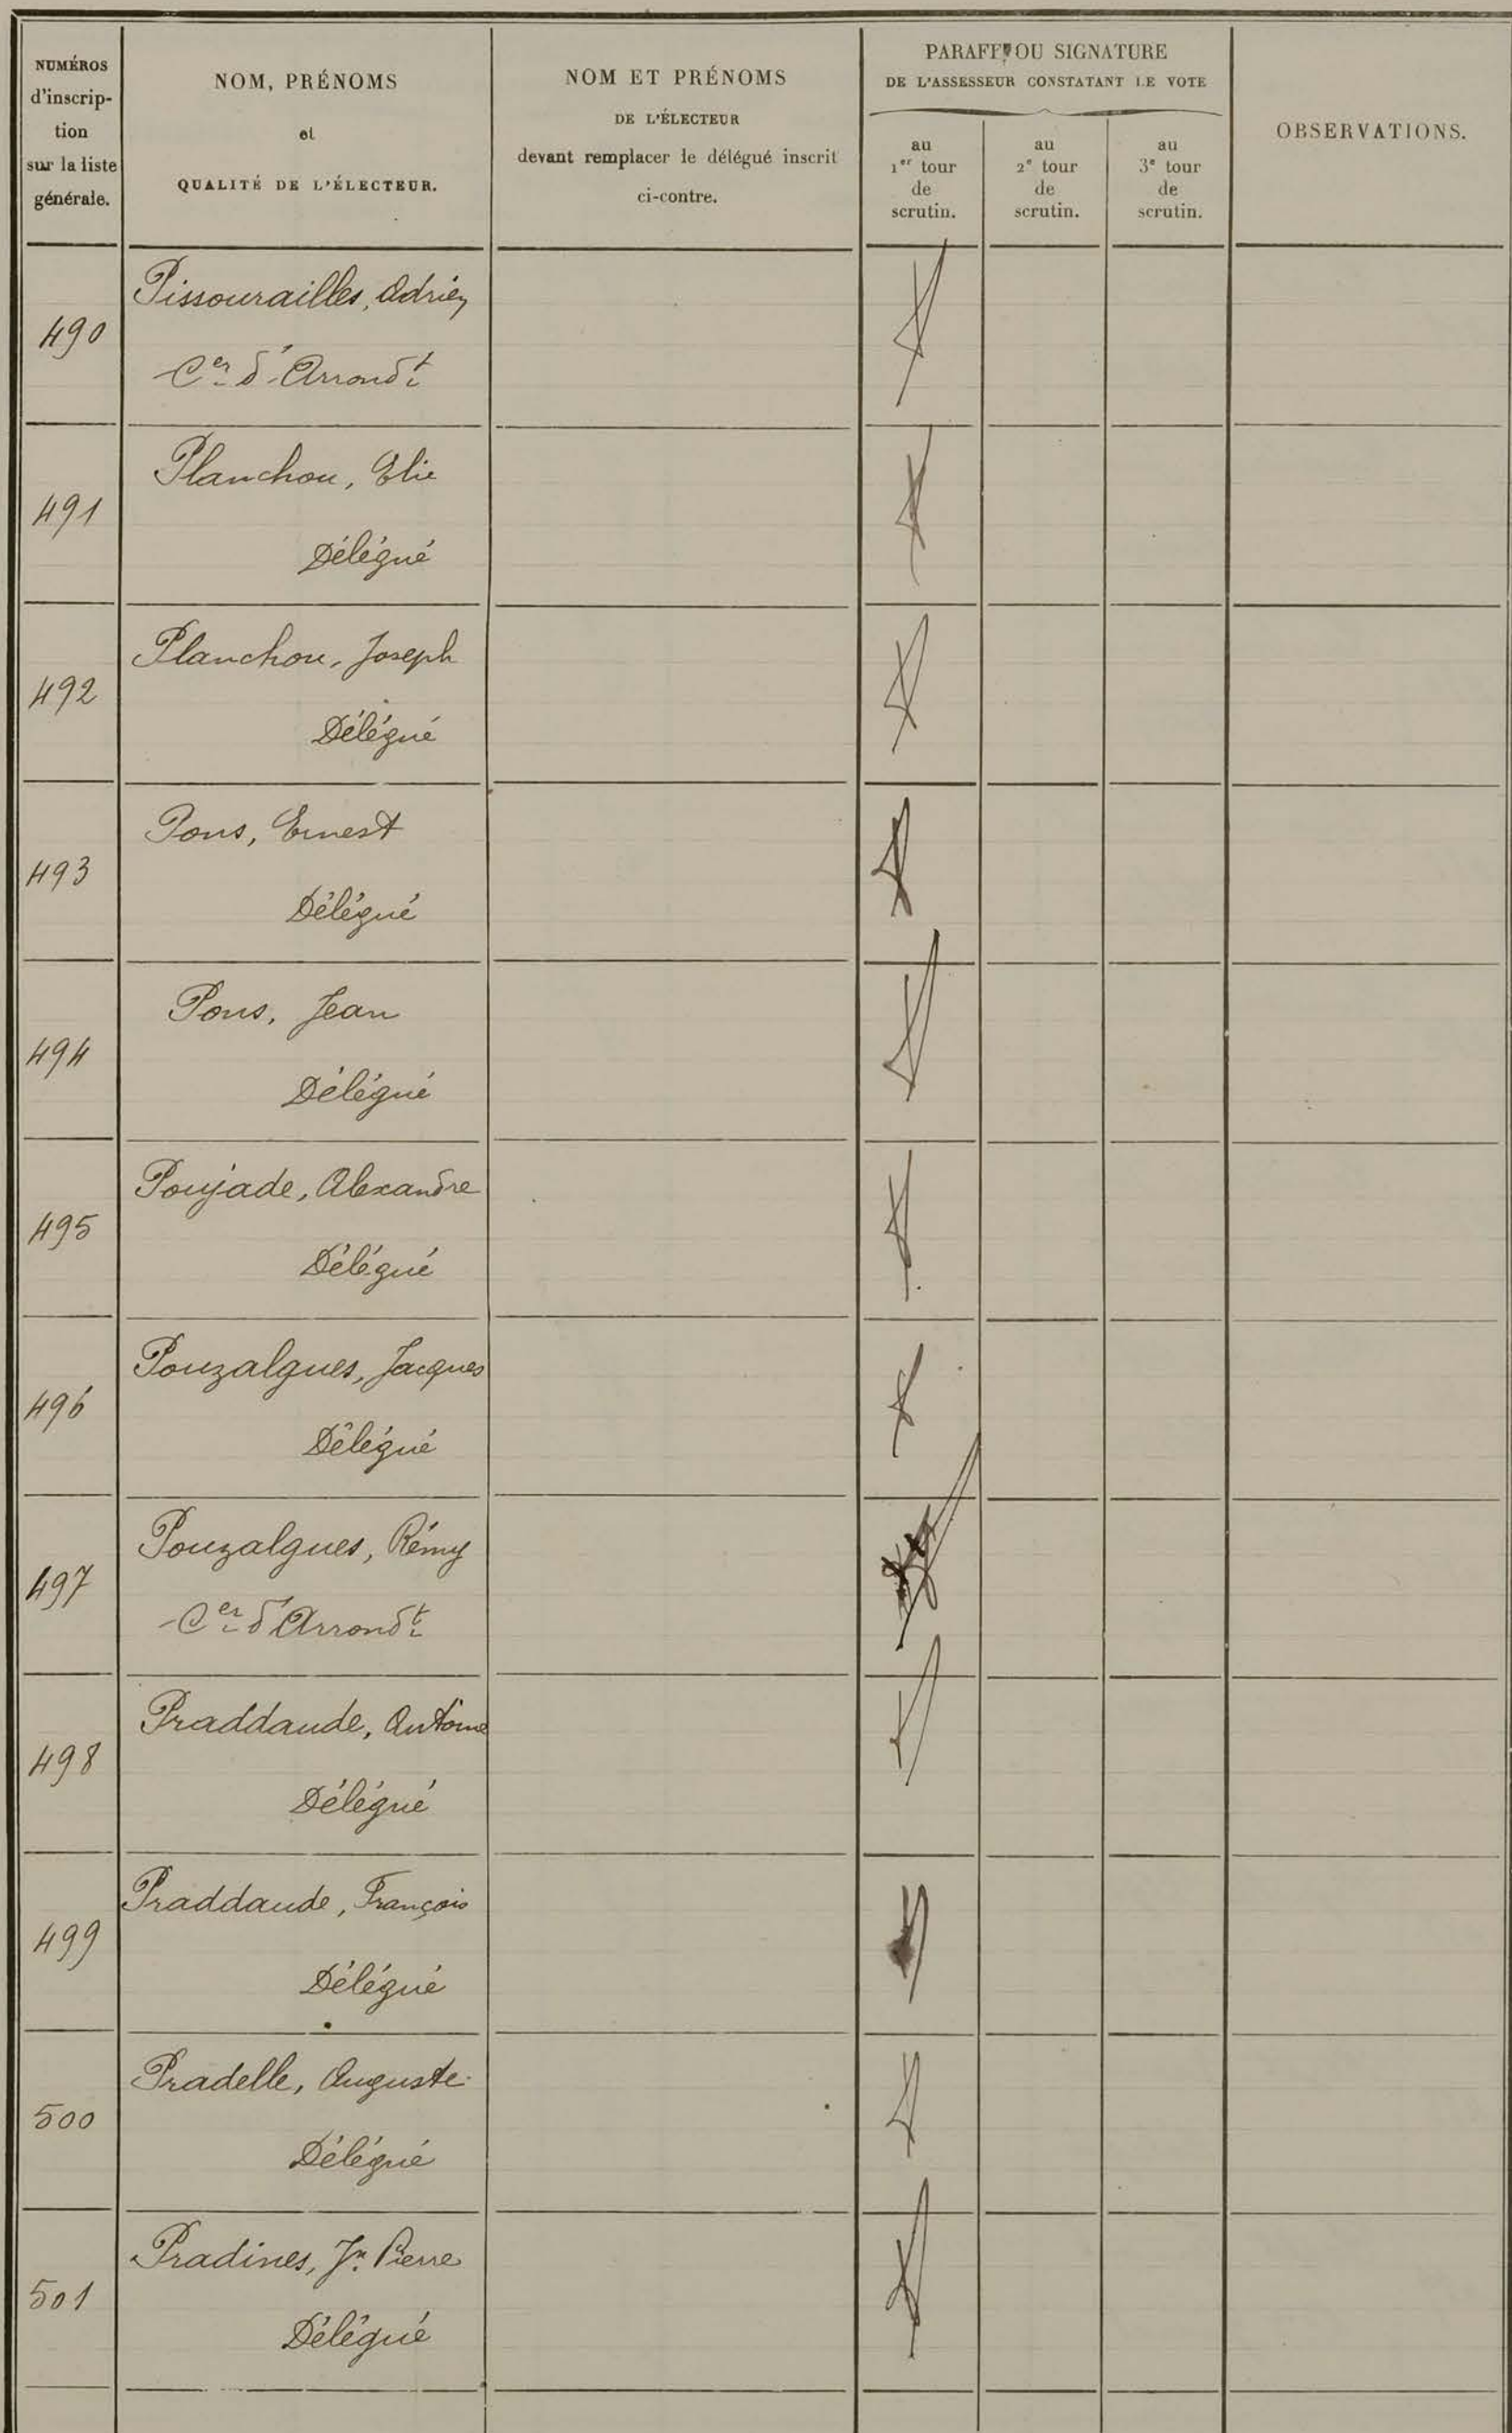 NUMÉROS
d'inscrip-
tion
sur la liste
générale.
NOM, PRÉNOMS
et
QUALITÉ DE L'ÉLECTEUR.
NOM ET PRÉNOMS
DE L'ÉLECTEUR
devant remplacer le délégué inscrit
ci-contre.
PARAFE OU SIGNATURE
DE L'ASSESSEUR CONSTATANT LE VOTE
au
1er tour
de
scrutin.
au
2e tour
de
scrutin.
au
3e tour
de
scrutin.
OBSERVATIONS.
490
Pissourailles, Adrien
Cer d'Arrondt
491
Planchou, Elie
Délégué
492
Planchou, Joseph
Délégué
493
Pons, Ernest
Délégué
494
Pons, Jean
Délégué
495
Poujade, Alexandre
Délégué
496
Pouzalgues, Jacques
Délégué
497
Pouzalgues, Rémy
Cer d'Arrondt
498
Praddaude, Antoine
Délégué
499
Praddaude, François
Délégué
500
Pradelle, Auguste
Délégué
501
Pradines, Jn Pierre
Délégué